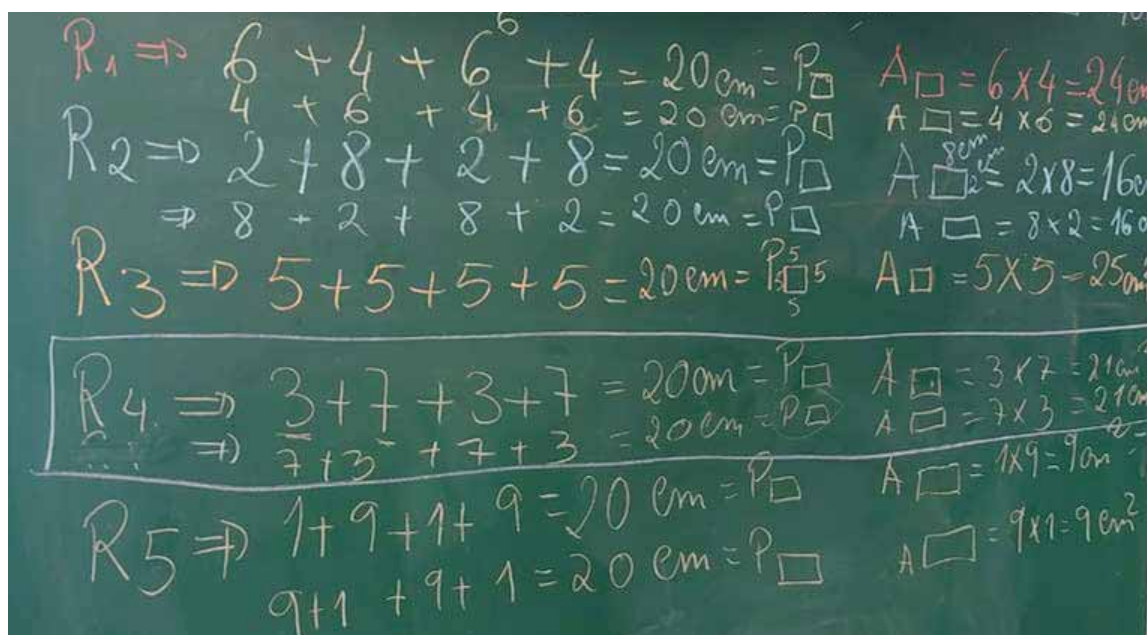 R1 ⇒ 6 + 4 + 6 + 4 = 20 cm = P□ A□ = 6 x 4 = 24 cm
4 + 6 + 4 + 6 = 20 cm = P□ A□ = 4 x 6 = 24 cm
R2 ⇒ 2 + 8 + 2 + 8 = 20 cm = P□ A□ 8cm 2cm = 2x8 = 16 c
⇒ 8 + 2 + 8 + 2 = 20 cm = P□ A□ = 8 x 2 = 16 c
R3 ⇒ 5 + 5 + 5 + 5 = 20 cm = P□ 5 5 5 5 A□ = 5 x 5 = 25 cm²
R4 ⇒ 3 + 7 + 3 + 7 = 20 cm = P□ A□ = 3 x 7 = 21 cm²
⇒ 7 + 3 + 7 + 3 = 20 cm = P□ A□ = 7 x 3 = 21 cm
R5 ⇒ 1 + 9 + 1 + 9 = 20 cm = P□ A□ = 1x9 = 9 cm²
9 + 1 + 9 + 1 = 20 cm = P□ A□ = 9x1 = 9 cm²